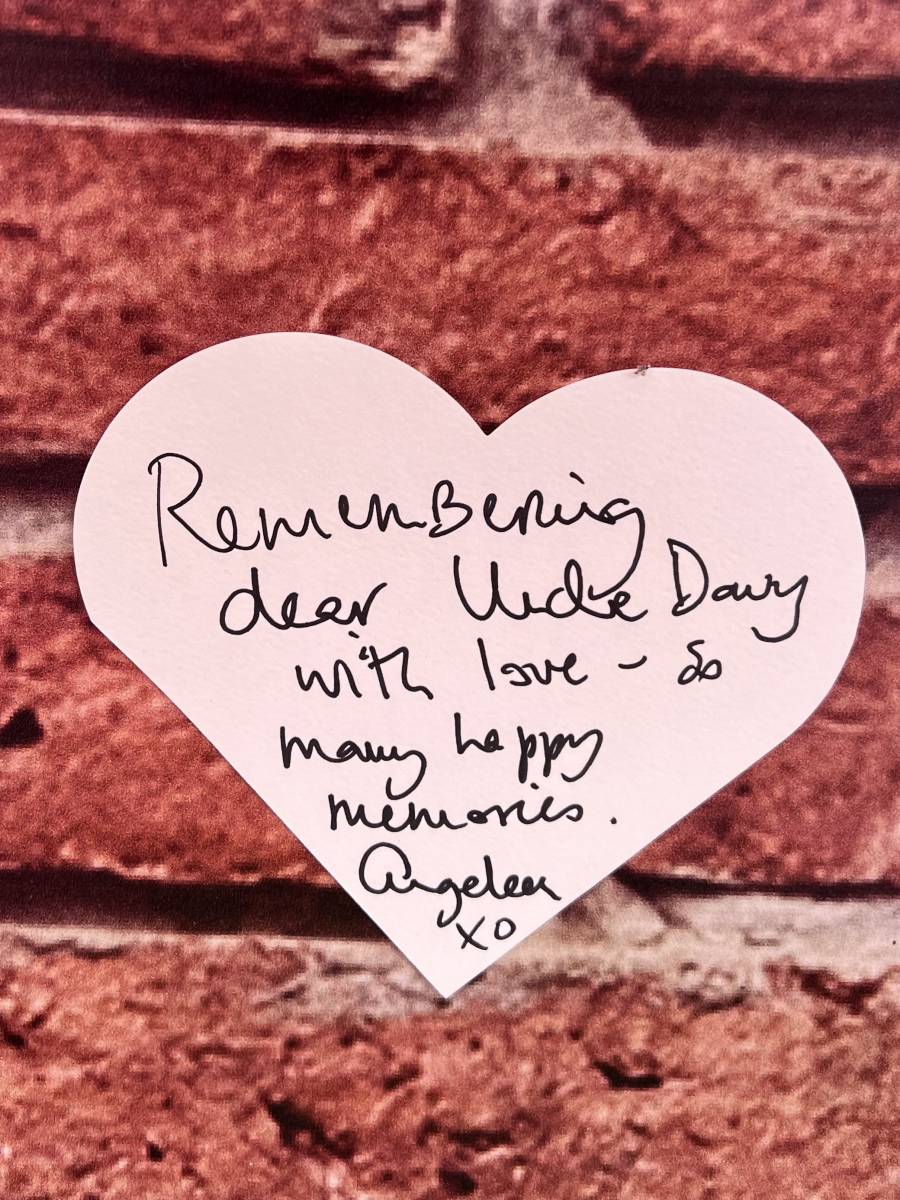 Remembering
dear Uncle Davy
with love - So
many happy
memories.
Angeleen
xo